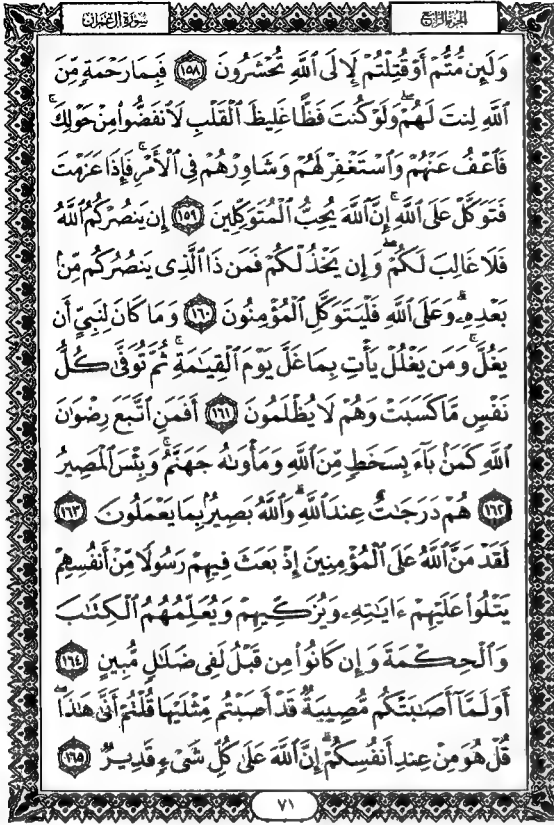 سورة آل عمران
الجزء الرابع
وَلَئِن مُّتُّمْ أَوْ قُتِلْتُمْ لَإِلَى ٱللَّهِ تُحْشَرُونَ ١٥٨ فَبِمَا رَحْمَةٍ مِّنَ
ٱللَّهِ لِنتَ لَهُمْ ۖ وَلَوْ كُنتَ فَظًّا غَلِيظَ ٱلْقَلْبِ لَٱنفَضُّوا۟ مِنْ حَوْلِكَ ۖ
فَٱعْفُ عَنْهُمْ وَٱسْتَغْفِرْ لَهُمْ وَشَاوِرْهُمْ فِى ٱلْأَمْرِ ۖ فَإِذَا عَزَمْتَ
فَتَوَكَّلْ عَلَى ٱللَّهِ ۚ إِنَّ ٱللَّهَ يُحِبُّ ٱلْمُتَوَكِّلِينَ ١٥٩ إِن يَنصُرْكُمُ ٱللَّهُ
فَلَا غَالِبَ لَكُمْ ۖ وَإِن يَخْذُلْكُمْ فَمَن ذَا ٱلَّذِى يَنصُرُكُم مِّنۢ
بَعْدِهِۦ ۗ وَعَلَى ٱللَّهِ فَلْيَتَوَكَّلِ ٱلْمُؤْمِنُونَ ١٦٠ وَمَا كَانَ لِنَبِىٍّ أَن
يَغُلَّ ۚ وَمَن يَغْلُلْ يَأْتِ بِمَا غَلَّ يَوْمَ ٱلْقِيَٰمَةِ ۚ ثُمَّ تُوَفَّىٰ كُلُّ
نَفْسٍ مَّا كَسَبَتْ وَهُمْ لَا يُظْلَمُونَ ١٦١ أَفَمَنِ ٱتَّبَعَ رِضْوَٰنَ
ٱللَّهِ كَمَنۢ بَآءَ بِسَخَطٍ مِّنَ ٱللَّهِ وَمَأْوَىٰهُ جَهَنَّمُ ۚ وَبِئْسَ ٱلْمَصِيرُ
١٦٢ هُمْ دَرَجَٰتٌ عِندَ ٱللَّهِ ۗ وَٱللَّهُ بَصِيرٌۢ بِمَا يَعْمَلُونَ ١٦٣
لَقَدْ مَنَّ ٱللَّهُ عَلَى ٱلْمُؤْمِنِينَ إِذْ بَعَثَ فِيهِمْ رَسُولًا مِّنْ أَنفُسِهِمْ
يَتْلُوا۟ عَلَيْهِمْ ءَايَٰتِهِۦ وَيُزَكِّيهِمْ وَيُعَلِّمُهُمُ ٱلْكِتَٰبَ
وَٱلْحِكْمَةَ وَإِن كَانُوا۟ مِن قَبْلُ لَفِى ضَلَٰلٍ مُّبِينٍ ١٦٤
أَوَلَمَّآ أَصَٰبَتْكُم مُّصِيبَةٌ قَدْ أَصَبْتُم مِّثْلَيْهَا قُلْتُمْ أَنَّىٰ هَٰذَا ۖ
قُلْ هُوَ مِنْ عِندِ أَنفُسِكُمْ ۗ إِنَّ ٱللَّهَ عَلَىٰ كُلِّ شَىْءٍ قَدِيرٌ ١٦٥
٧١